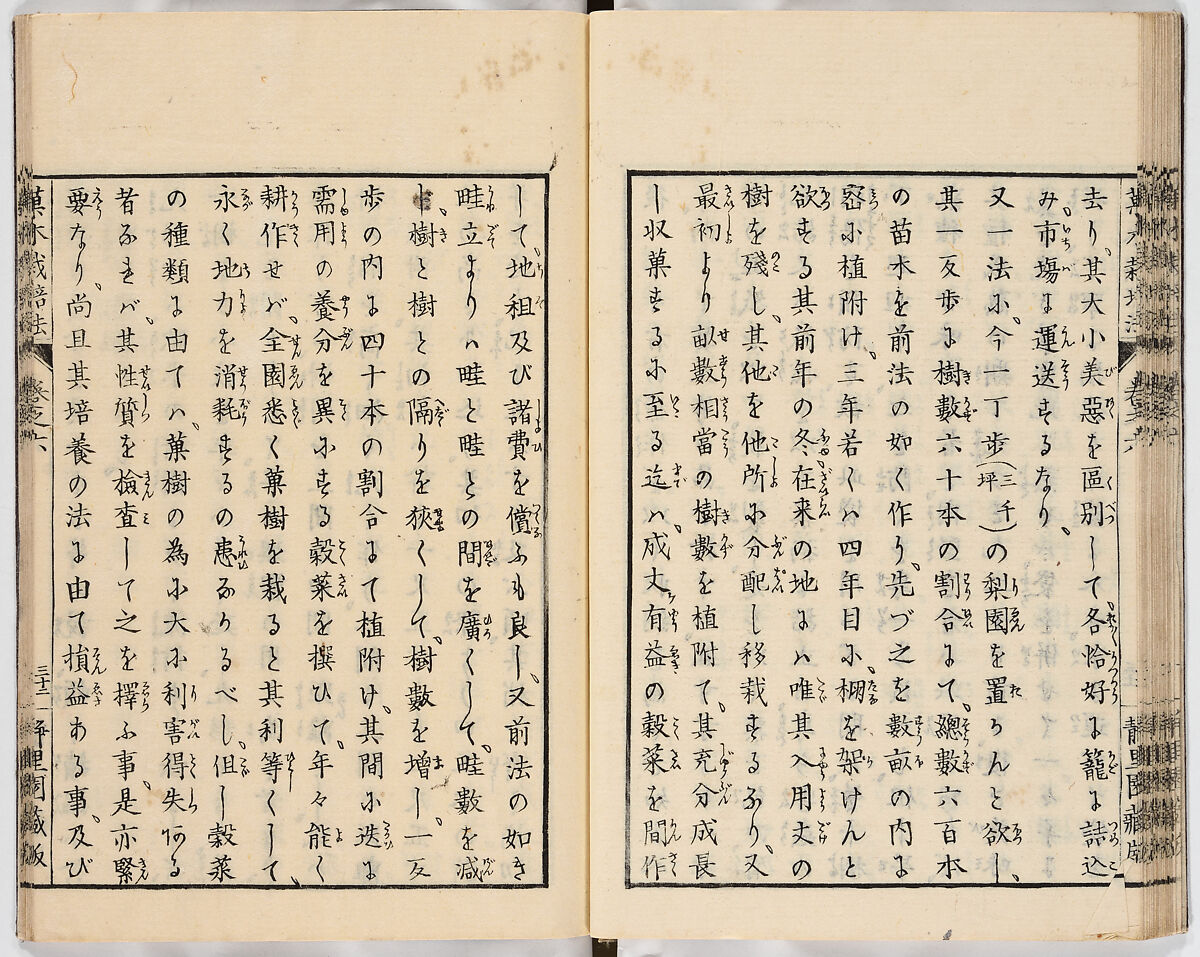 去り、其大小美惡を區別して各恰好に籠に詰込
み、市塲に運送するなり、
又一法に、今一丁歩(三千坪)の梨園を置かんと欲し、
其一反歩に樹數六十本の割合にて、總數六百本
の苗木を前法の如く作り、先づ之を數畝の内に
密に植附け、三年若くハ四年目に、棚を架けんと
欲する其前年の冬、在来の地にハ唯其入用丈の
樹を殘し、其他を他所に分配し移栽するなり、又
最初より畝數相當の樹數を植附て、其充分成長
し収菓するに至る迄ハ、成丈有益の穀菜を間作
して、地租及び諸費を償ふも良し、又前法の如き
畦立よりハ畦と畦との間を廣くして、畦數を減
し、樹と樹との隔りを狹くして、樹數を増し、一反
歩の内に四十本の割合にて植附け、其間に迭に
需用の養分を異にする穀菜を撰ひて、年々能く
耕作せバ、全園悉く菓樹を栽ると其利等くして、
永く地力を消耗するの患なかるべし、但し穀菜
の種類に由てハ、菓樹の為に大に利害得失ある
者なれバ、其性質を檢査して之を擇ふ事、是亦緊
要なり、尚且其培養の法に由て損益ある事、及び
菓木栽培法
卷之六
三十二
靜里園藏版